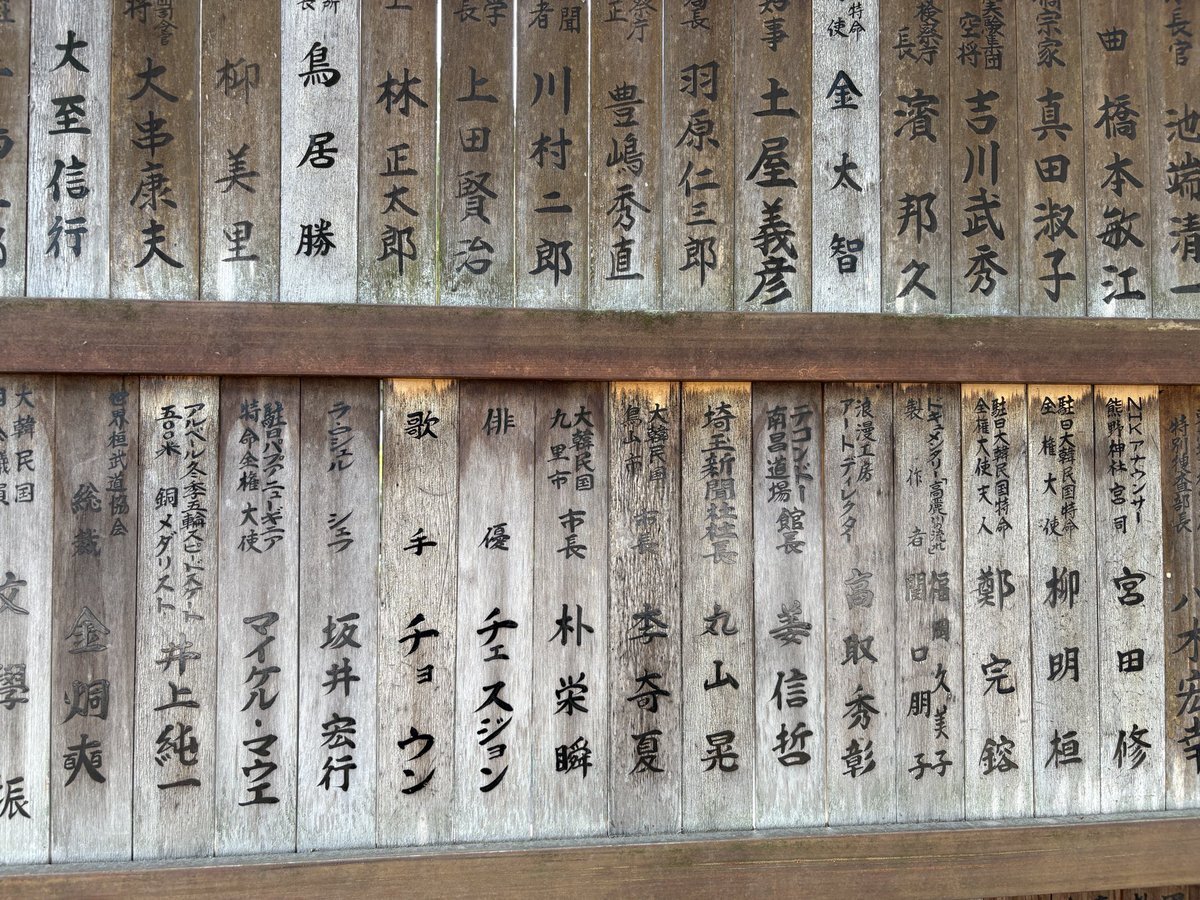 池端清一
橋本敏江
真田淑子
吉川武秀
濱邦久
特命
金太智
土屋義彦
羽原仁三郎
豊嶋秀直
川村二郎
上田賢治
林正太郎
鳥居勝
柳美里
大串康夫
大至信行
特別捜査部長
八木宏幸
NHKアナウンサー
熊野神社宮司
宮田修
駐日大韓民国特命
全権大使
柳明桓
駐日大韓民国特命
全権大使夫人
鄭完鎔
製作者
福岡久美子
関口朋子
浪漫工房
アートディレクター
高取秀彰
テコンドー
南昌道場館長
姜信哲
埼玉新聞社社長
丸山晃
大韓民国
烏山市市長
李奇夏
大韓民国
九里市市長
朴栄瞬
俳優
チェスジョン
歌手
チョウン
ラ・ジェル シェフ
坂井宏行
駐日パプアニューギニア
特命全権大使
マイケル・マウエ
アルベールビル冬季五輪スピードスケート
五〇〇米銅メダリスト
井上純一
世界桓武道協会
総裁
金炯奭
大韓民国
文學振